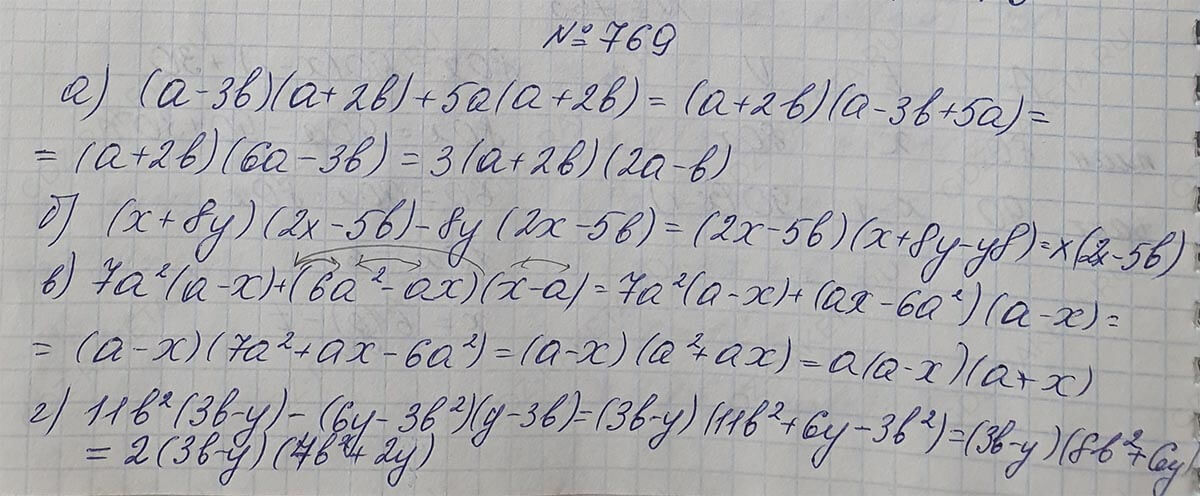 № 769
а) (a-3b)(a+2b)+5a(a+2b)=(a+2b)(a-3b+5a)=
=(a+2b)(6a-3b)=3(a+2b)(2a-b)
б) (x+8y)(2x-5b)-8y(2x-5b)=(2x-5b)(x+8y-y8)=x(2x-5b)
в) 7a²(a-x)+(6a²-ax)(x-a)=7a²(a-x)+(ax-6a²)(a-x)=
=(a-x)(7a²+ax-6a²)=(a-x)(a²+ax)=a(a-x)(a+x)
г) 11b²(3b-y)-(6y-3b²)(y-3b)=(3b-y)(11b²+6y-3b²)=(3b-y)(8b²+6y)
=2(3b-y)(4b²+2y)